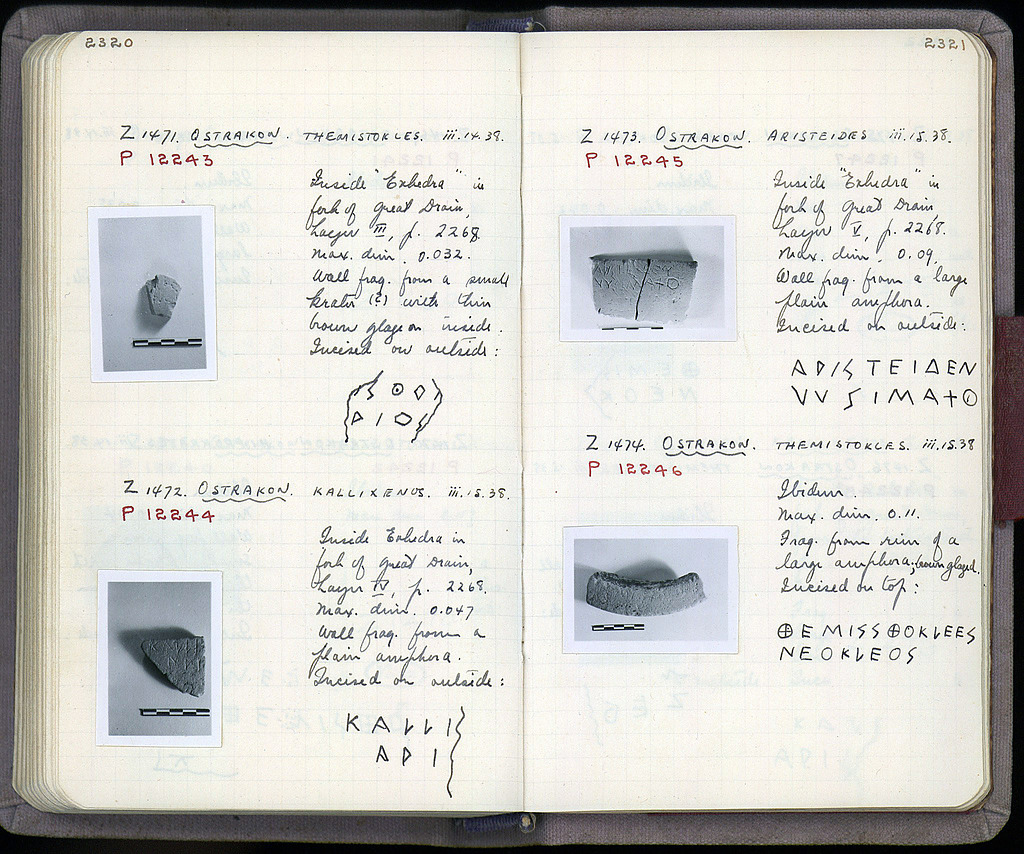 2320
Z 1471. OSTRAKON. THEMISTOKLES. iii.14.38.
P 12243
Inside "Exhedra" in
fork of Great Drain,
Layer III, p. 2268.
Max. dim. 0.032.
Wall frag. from a small
krater (?) with thin
brown glaze on inside.
Incised on outside:
Z 1472. OSTRAKON. KALLIXENUS. iii.15.38.
P 12244
Inside Exhedra in
fork of Great Drain,
Layer IV, p. 2268.
Max. dim. 0.047
Wall frag. from a
plain amphora.
Incised on outside:
KALLI
ΑΡΙ
2321
Z 1473. OSTRAKON. ARISTEIDES iii.15.38.
P 12245
Inside "Exhedra" in
fork of Great Drain
Layer V, p. 2268.
Max. dim. 0.09.
Wall frag. from a large
plain amphora.
Incised on outside:
ΑΡΙSΤΕΙΔΕΝ
LVSIMAΧΟ
Z 1474. OSTRAKON. THEMISTOKLES. iii.15.38
P 12246
Ibidum
Max. dim. 0.11.
Frag. from rim of a
large amphora; brown glazed.
Incised on top:
⊕EMISS⊕OKLEES
NEOKLEOS